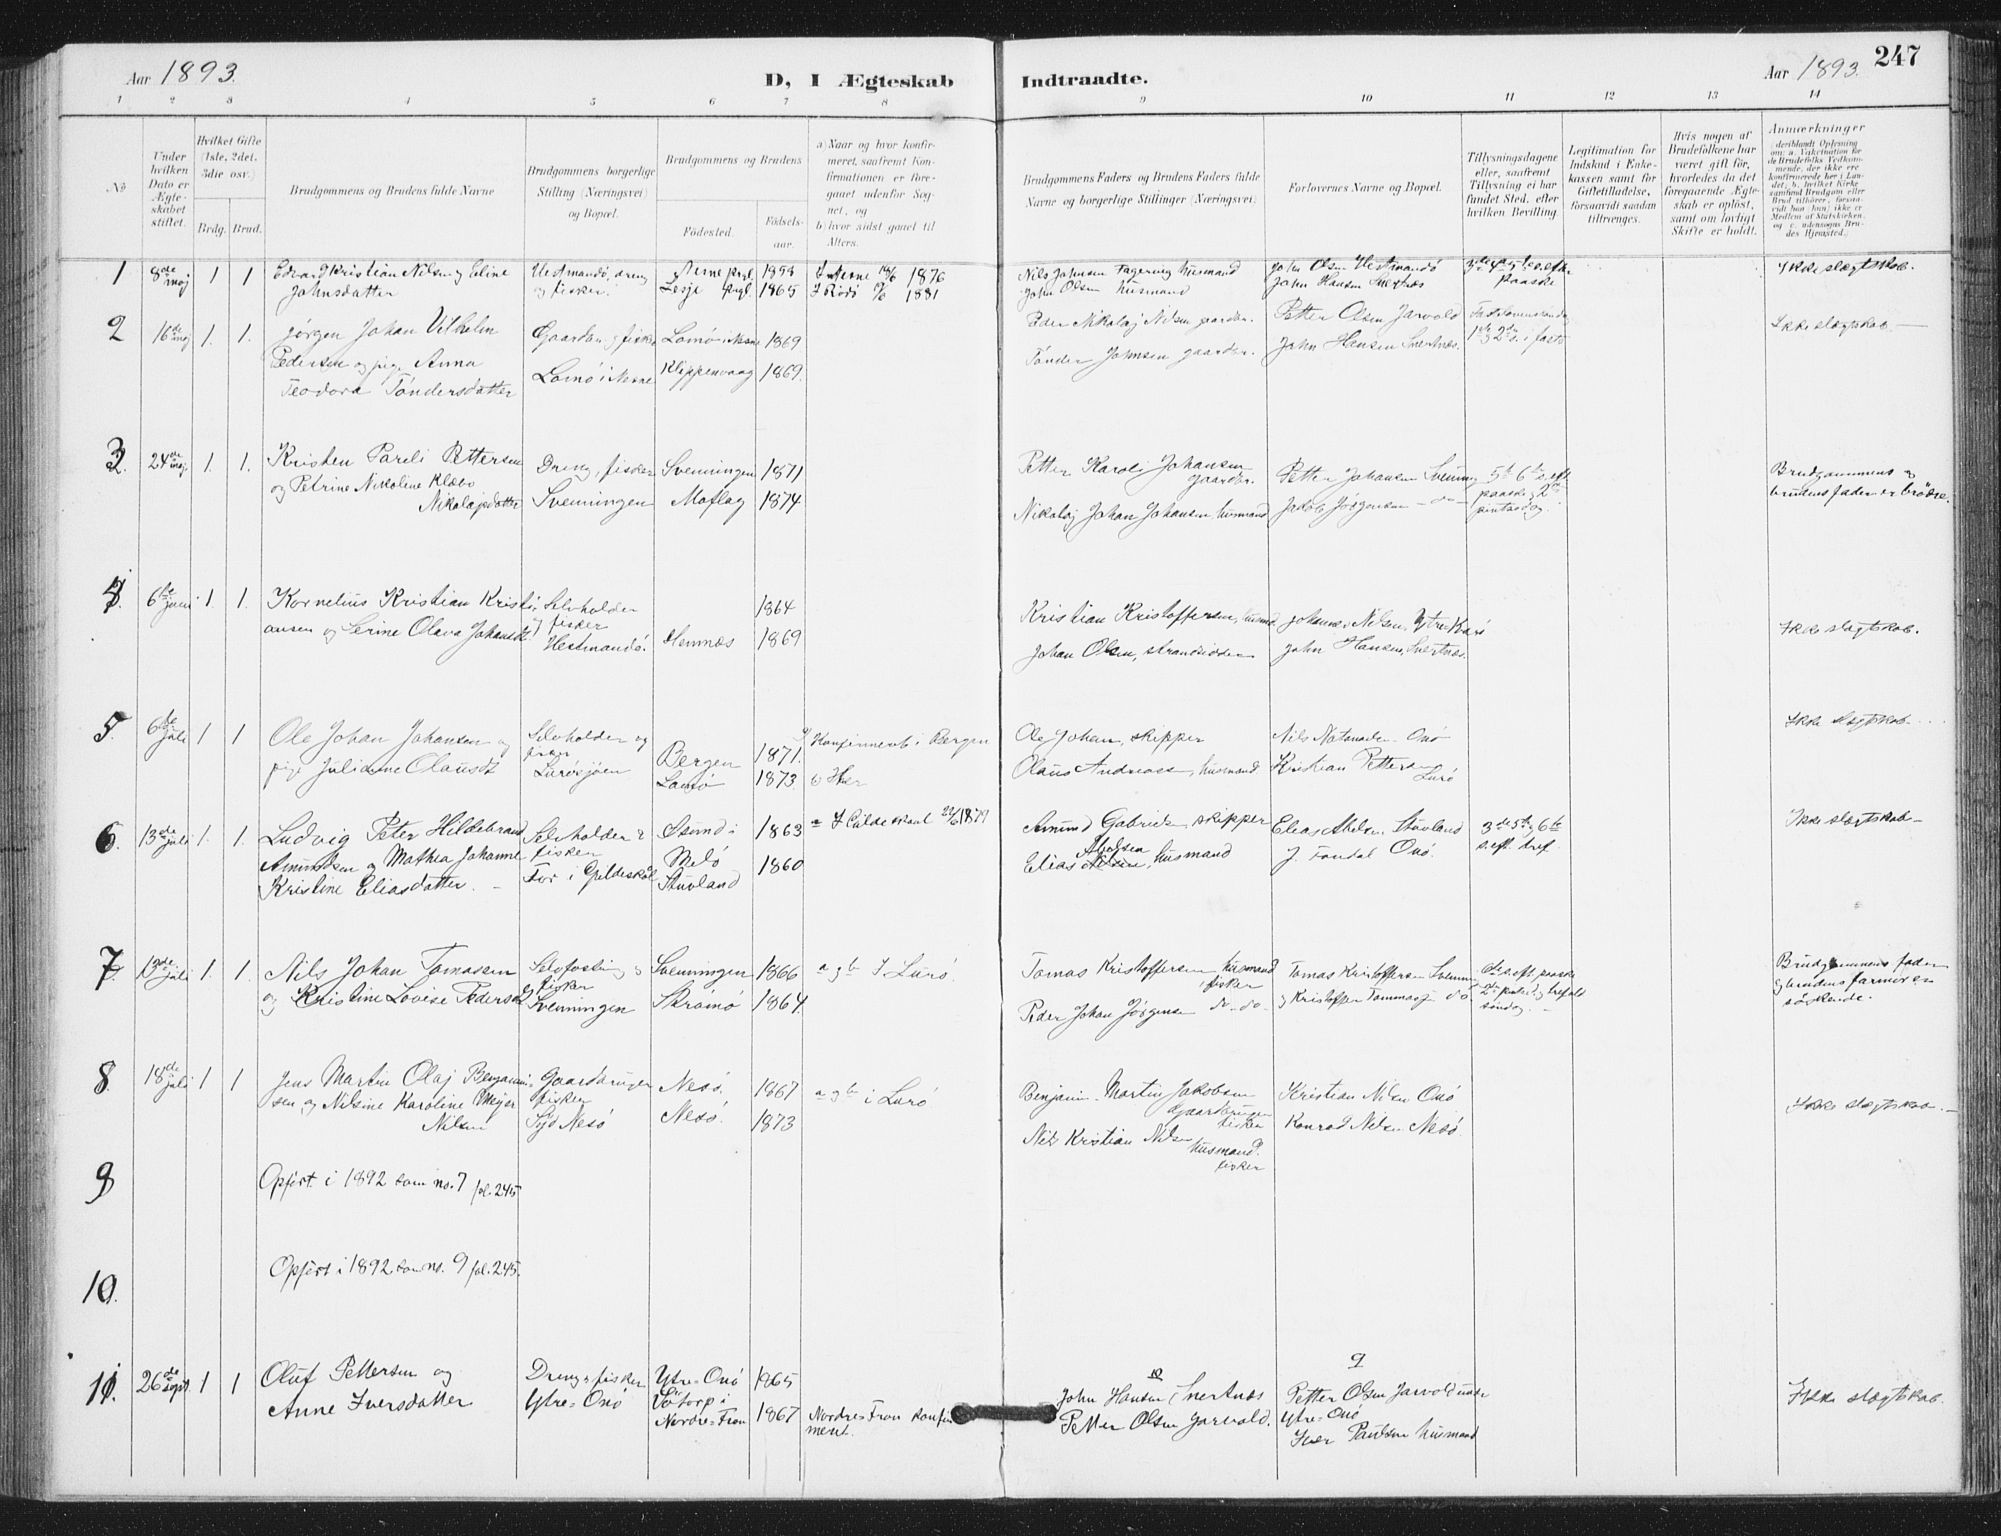 Aar 1893.
D, I Ægteskab Indtraadte.
Aar 1893.
247
1 2 3 4 5 6 7 8 9 10 11 12 13 14
No
Under hvilken Dato er Ægteskabet stiftet.
Hvilket Gifte (1ste, 2det, 3die osv.)
Brdg. Brud.
Brudgommens og Brudens fulde Navne
Brudgommens borgerlige Stilling (Næringsvei) og Bopæl.
Brudgommens og Brudens
Födested. Födselsaar.
a) Naar og hvor konfirmeret, saafremt Konfirmationen er foregaaet udenfor Sognet, og
b) hvor sidst gaaet til Alters.
Brudgommens Faders og Brudens Faders fulde Navne og borgerlige Stillinger (Næringsvei)
Forlovernes Navne og Bopæl.
Tillysningsdagene eller, saafremt Tillysning ei har fundet Sted, efter hvilken Bevilling
Legitimation for Indskud i Enkekassen samt for Giftetilladelse, forsaavidt saadan tiltrænges.
Hvis nogen af Brudefolkene har været gift för, hvorledes da det foregaaende Ægteskab er oplöst, samt om lovligt Skifte er holdt.
Anmærkninger
(deriblandt Oplysning om: a. Vakcination for de Brudefolks Vedkommende, der ikke ere konfirmerede her i Landet; b. hvilket Kirkesamfund Brudgom eller Brud tilhörer, forsaavidt han (hun) ikke er Medlem af Statskirken, og c. udensogns Brudes Hjemsted.)
1 8de maj 1 1 Edvard Kristian Nilsen og Eline
Johnsdatter
Hestmandö, dreng
og fisker.
Nesne prgl. 1858
Lesje prgl. 1865
I Nesne 18/6 1876
I Rödö 1881
Nils Johnsen Fagervig husmand
John Olsen husmand
John Olsen Hestmandö
John Hansen Snertnæs
3de 4de 5te s. efter
paaske
Ikke slægtskab.
2 16de maj 1. 1. Jörgen Johan Vilhelm
Pedersen og pige Anna
Teodora Töndersdatter
Gaardm. og fisker
Lomö i Nesne
Lomö i Nesne 1869
Klippenvaag 1869.
Peder Nikolaj Nilsen gaardbr.
Tönder Johnsen gaardbr.
Petter Olsen Jarvold
John Hansen Snertnæs.
1ste og 2den s. i faste
Ikke slægtskab.
3 24de maj. 1. 1. Kristen Pareli Pettersen
og Petrine Nikoline Klæbo
Nikolajsdatter
Dreng, fisker
Svenningen
Svenningen 1871
Moflag 1874
Petter Karoli Johansen
gaardbr.
Nikolaj Johan Johansen, husmand
Petter Johansen Svenning
Jakob Jörgensen - do -
5te 6te s. eft.
paaske og 2den
pintsedag.
Brudgommens og
brudens fader er brödre.
4 6te juni 1. 1. Kornelius Kristian Kristi-
ansen og Serine Olava Johansdt.
Selvholder
og fisker
Hestmandö.
1864
Hemnæs 1869
Kristian Kristoffersen, husmd.
Johan Olsen, strandsidder
Johannes Nilsen, Ytre-Kvarö
John Hansen, Snertnæs.
Ikke slægtskab.
5. 6te juli 1 1 Ole Johan Johansen og
pige Juliane Olausdt
Selvholder og
fisker
Lurösjöen
Bergen 1871.
Lomö 1873.
a) Konfirmeret i Bergen
b) Her
Ole Johan, skipper
Olaus Andreassen, husmand
Nils Notanælsen Onö
Kristian Pettersen
Lurö
Ikke slægtskab.
6. 13de juli 1. 1. Ludvig Peter Hildebrand
Amundsen og Mathea Johanne
Kristine Eliasdatter. -
Selvholder &
fisker
For i Gildeskål
Meló
Stuvland
1863
1860
a I Gildeskaal 22/6 1879
Amund Gabrielsen, skipper
Elias Abelsen, husmand
Elias Abelsen, Stuvland
J. Fondal Onö.
3de 5te og 6te
s. eft. tref.
Ikke slægtskab -
7. 13de juli 1. 1. Nils Johan Tomassen
og Kristine Lovise Pedersdt
Selvfostring og
fisker
Svenningen
Svenningen 1866
Skromö 1864.
a og b I Lurö.
Tomas Kristoffersen husmand
fisker
Peder Johan Jörgensen do - do -
Tomas Kristoffersen Svenning
og Kristoffer Tommasen do.
s. eft. paaske
2den pintsedag trefold
söndag. -
Brudgommens fader
og brudens farmor er
söskende.
8. 18de juli 1 1 Jens Martin Olaj Benjamin-
sen og Nilsine Karoline Meyer
Nilsen
Gaardbruger
fisker
Syd Nesö
Nesö. 1867
Nesö. 1873
a og b i Lurö
Benjamin Martin Jakobsen
Gaardbruger
fisker
Nils Kristian Nilsen
husmand
fisker
Kristian Nilsen Onö
Konrad Nilsen Nesö.
Ikke slægtskab. -
9 Opfört i 1892 som no. 7 fol. 245
10. Opfört i 1892 som no. 9 fol. 245.
11. 26de sept. 1 1 Oluf Pettersen og
Anne Iversdatter
Dreng, fisker
Ytre-Onö
Ytre-Onö 1865
Nordre-Fron 1867
Nordre-Fron konfir-
ment.
10
John Hansen Snertnæs
Petter Olsen Jarvold.
9
Petter Olsen Jarvold
Ytre-Onö
Iver Paulsen husmand
Ikke slægtskab.